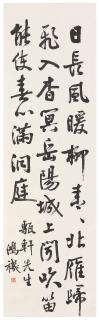 日長風暖柳青青北雁歸
飛入杳冥岳陽城上聞吹笛
能使春心滿洞庭
甄軒先生
鴻禨